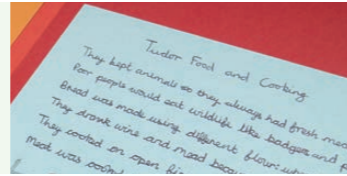 Tudor Food and Cooking
They kept animals so they always had fresh
Poor people would eat wildlife like badger and
Bread was made using different flour:
They drank wine and mead
They cooked on open
meat was